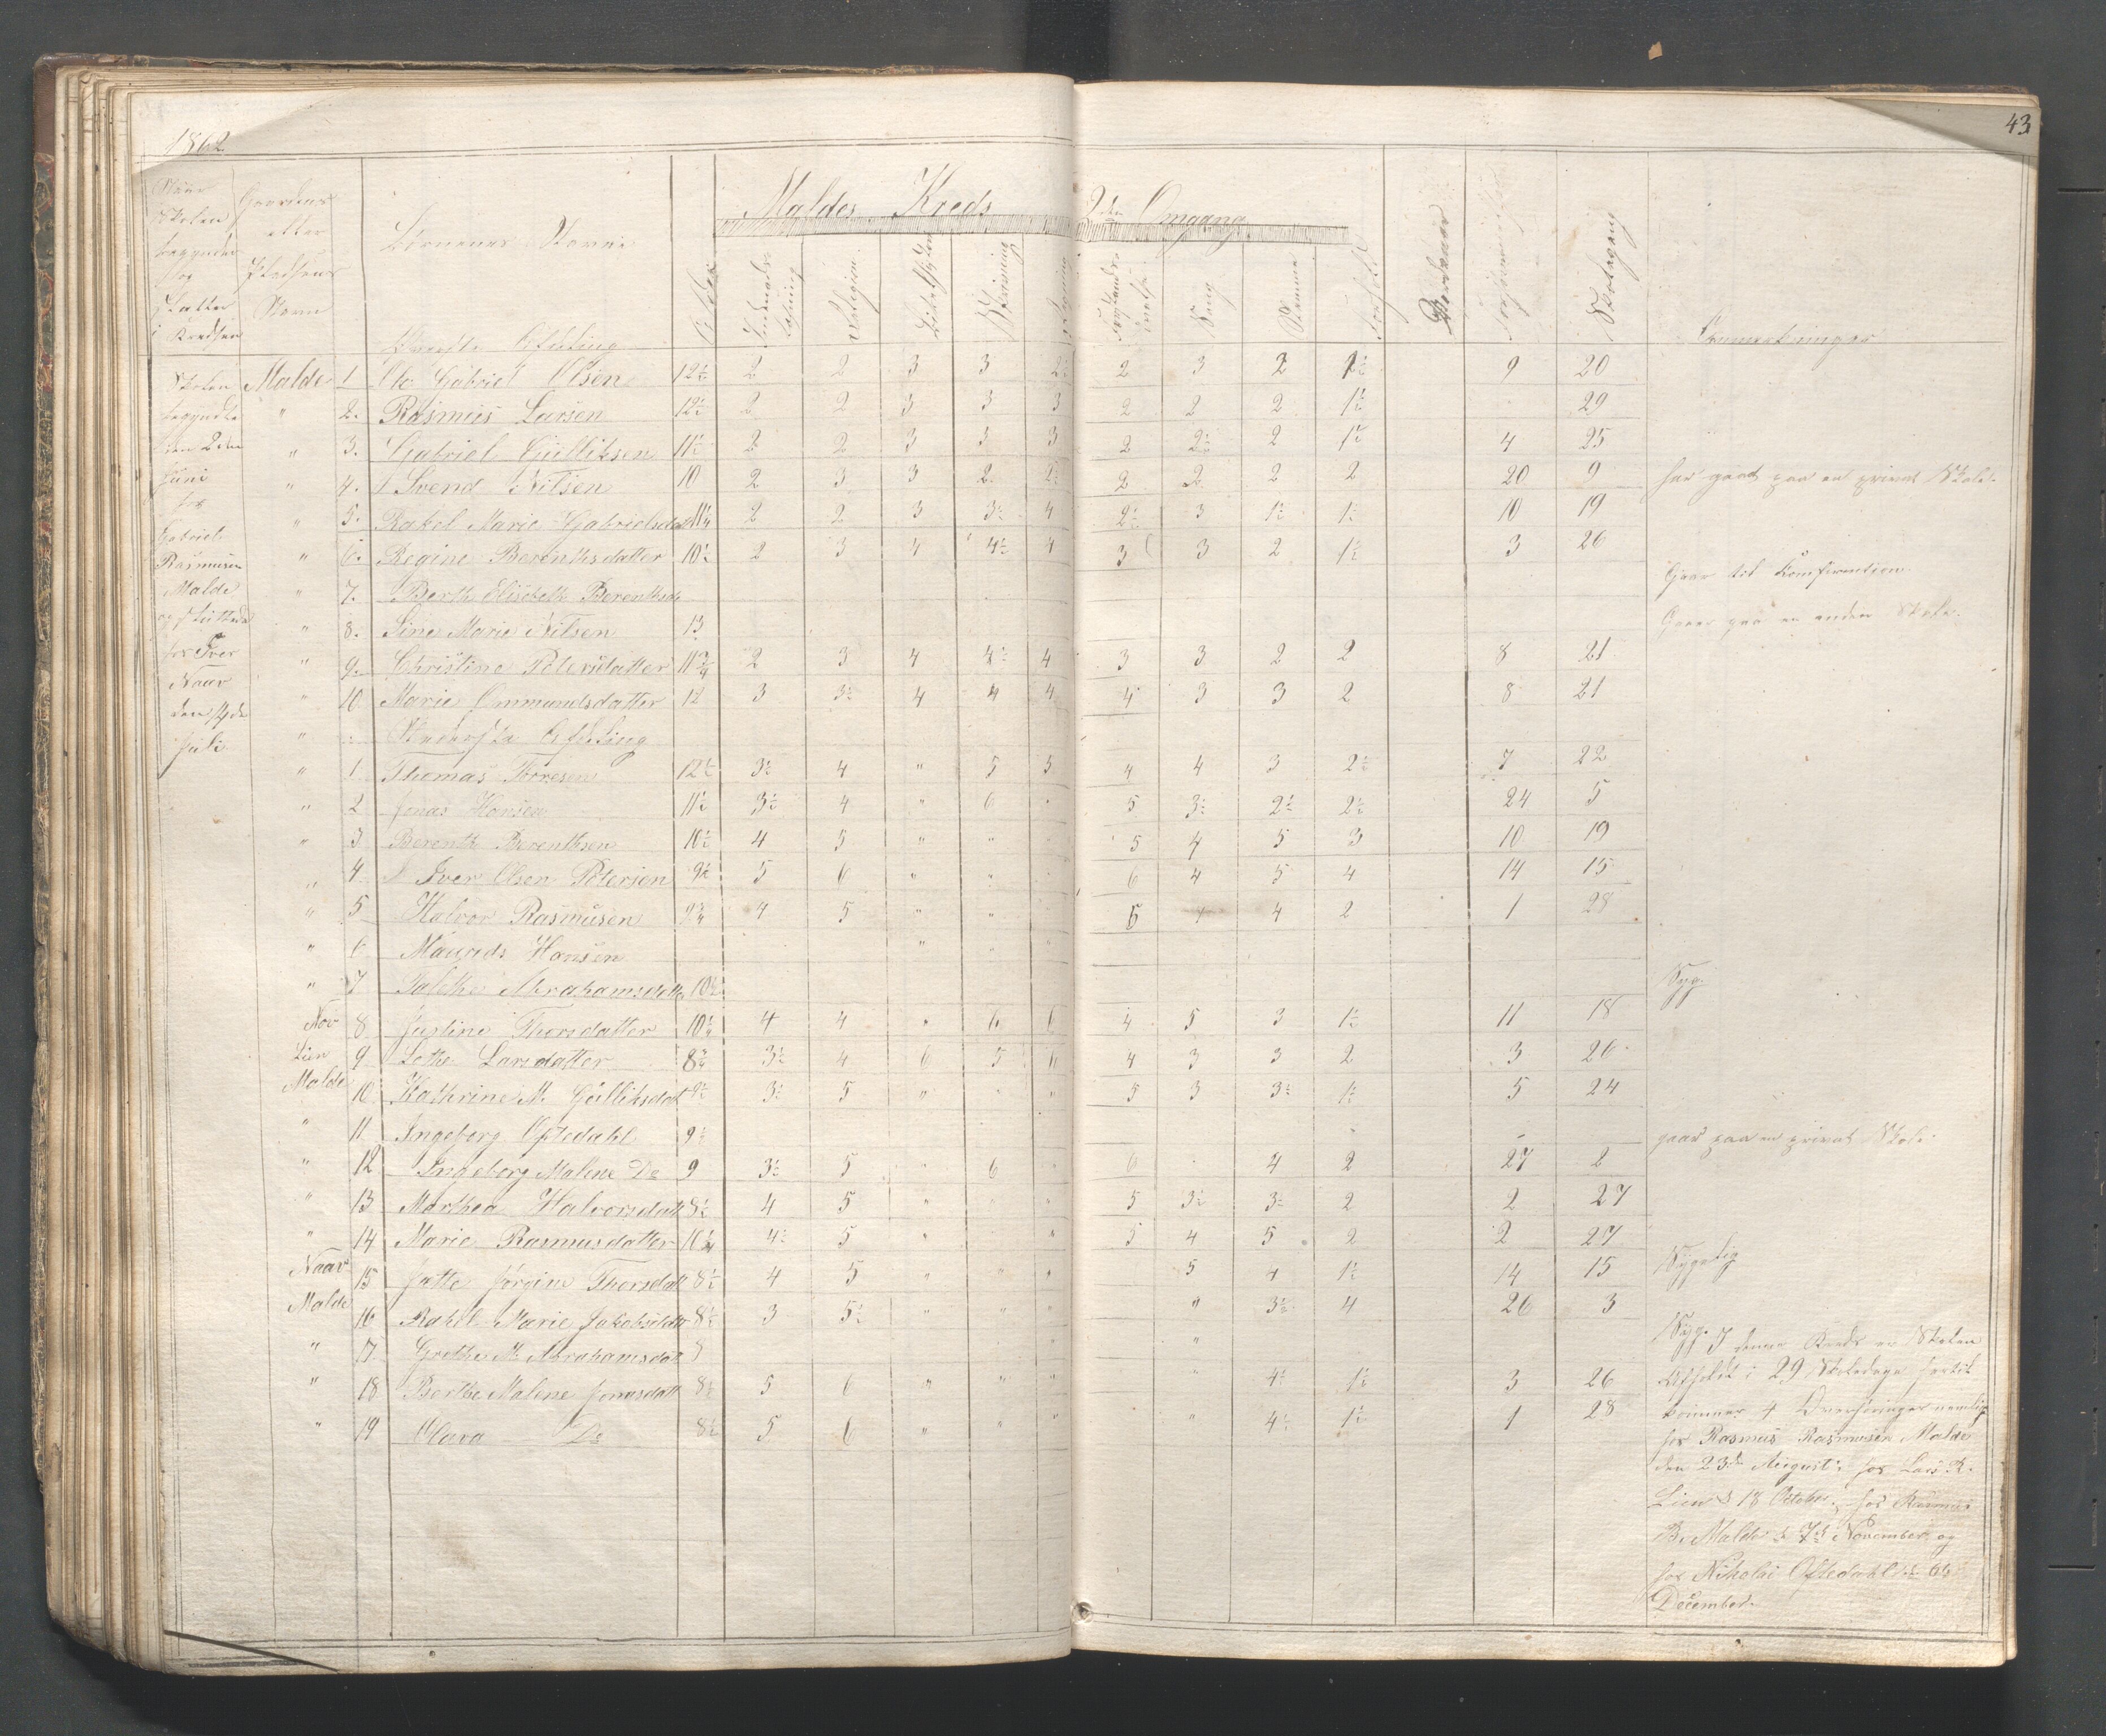 43
1862
Maldes Kreds 2den Omgang
Naar Skolen begynder og slutter i Kredsen
Gaardens eller Pladsens Navn
Børnenes Navne
Alder
Indenadslæsning
Religion
Skrivning
Regning
Sang
Stemme
Forhold
Skolegang
Anmerkninger
Øverste Afdeling
Malde 1 Ole Gabriel Olsen 12½ 2 2 3 3 2½ 2 3 2 1½ 9 20
" 2. Rasmus Larsen 12½ 2 2 3 3 3 2 2 2 1½ 29
" 3. Gabriel Gulliksen 11½ 2 2 3 3 3 2 2½ 2 1½ 4 25
" 4. Svend Nilsen 10 2 3 3 2 2½ 2 2 2 2 20 9 har gaat paa en privat Skole.
" 5. Rakel Marie Gabrielsdat 11¼ 2 2 3 3½ 4 2½ 3 1½ 1½ 10 19
" 6. Regine Berentsdatter 10½ 2 3 4 4½ 4 3 3 2 1½ 3 26
" 7. Berth Elisebeth Berentsd Gaar til Konfirmation.
" 8. Sine Marie Nilsen 13 Gaar paa en anden Skole.
" 9. Christine Petersdatter 11¾ 2 3 4 4½ 4 3 3 2 2 8 21
" 10 Marie Ommundsdatter 12 3 3½ 4 4 4 4 3 3 2 8 21
Skolen
begyndte
den 2den
Juni
hos
Gabriel
Rasmusen
Malde
og sluttede
hos Iver
Naar
den 14de
Juli
Nederste Afdeling
" 1 Thomas Torresen 12½ 3½ 4 " 5 5 4 4 3 2½ 7 22
" 2 Jonas Hansen 11½ 3½ 4 " 6 5 3½ 2½ 2½ 24 5
" 3 Berenth Berenthsen 10½ 4 5 " " 5 4 5 3 10 19
" 4 Iver Olsen Petersen 9½ 5 6 " " 6 4 5 4 14 15
" 5 Halvor Rasmusen 9¾ 4 5 " " 5 4 2 1 28
" 6 Maurids Hansen " " "
" 7 Abrahamsdatt 10½ Syg.
Nov 8 Justine Thorsdatter 10½ 4 4 " 6 6 4 5 3 1½ 11 18
Lien 9 Larsdatter 8¾ 3½ 4 6 5 6 4 3 3 2 3 26
Malde 10 Kathrine M. Gulliksdat 9½ 3½ 5 " " " 5 3 3½ 1½ 5 24
" 11 Ingeborg Oftedahl 9½ gaar paa en privat Skole.
" 12 Ingeborg Malene Do 9 3½ 5 " 6 6 4 2 27 2
" 13 Marthea Halvorsdatt 8½ 4 5 " " " 5 3½ 3½ 2 2 27
" 14 Marie Rasmusdatter 10¼ 4½ 5 " " 5 4 5 2 2 27
Naar 15 Jørgine Thorsdatt 8½ 4 5 " " " 5 4 1½ 14 15 Sygelig
Malde 16 Rakel Marie Jakobsdatt 8½ 3 5½ " " " " 3½ 4 26 3
" 17 Grethe M. Abrahamsdatt " Syg.
" 18 Berthe Malene Jonasdatt 8½ 5 6 " " " " 4½ 1½ 3 26
" 19 Olava Do 8½ 5 6 " " " " 4½ 1½ 1 28
I denne Kreds er Skolen
afholdt i 29 Skoledage hertil
kommer 4 nemlig
hos Rasmus Rasmusen Malde
den 23de August, hos Lars R.
Lien d 18 Oktober, hos Rasmus
B. Malde d. 7de November og
hos Nikolai Oftedahl d. 6te
December.